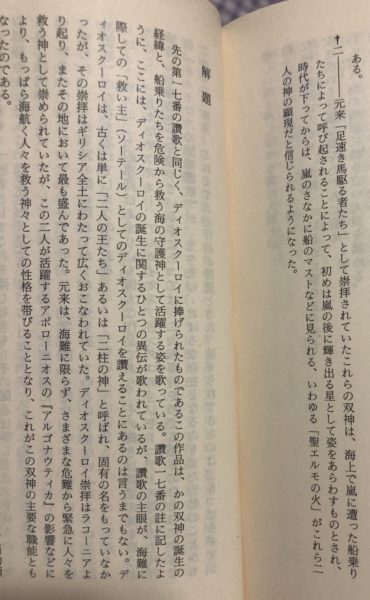 ある。
†二――元来「足速き馬駆る者たち」として崇拝されていたこれらの双神は、海上で嵐に遭った船乗り
たちによって呼び起されることによって、初めは嵐の後に輝き出る星として姿をあらわすものとされ、
時代が下ってからは、嵐のさなかに船のマストなどに見られる、いわゆる「聖エルモの火」がこれら二
人の神の顕現だと信じられるようになった。
解題
先の第一七番の讃歌と同じく、ディオスクーロイに捧げられたものであるこの作品は、かの双神の誕生の
経緯と、船乗りたちを危険から救う海の守護神として活躍する姿を歌っている。讃歌一七番の註に記したよ
うに、ここには、ディオスクーロイの誕生に関するひとつの異伝が歌われているが、讃歌の主眼が、海難に
際しての「救い主」(ソーテール)としてのディオスクーロイを讃えることにあるのは言うまでもない。デ
ィオスクーロイは、古くは単に「二人の王たち」あるいは「二柱の神」と呼ばれ、固有の名をもっていなか
ったが、その崇拝はギリシア全土にわたって広くおこなわれていた。ディオスクーロイ崇拝はラコーニアよ
り起り、またその地において最も盛んであった。元来は、海難に限らず、さまざまな危難から緊急に人々を
救う神として崇められていたが、この二人が活躍するアポローニオスの『アルゴナウティカ』の影響などに
より、もっぱら海航く人々を救う神々としての性格を帯びることとなり、これがこの双神の主要な職能とも
なったのである。